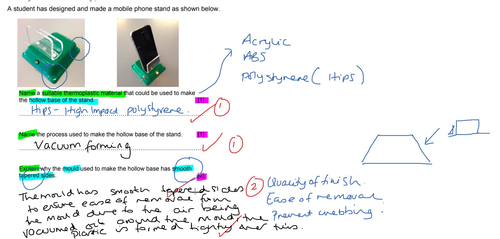 A student has designed and made a mobile phone stand as shown below.
Acrylic
ABS
polystyrene ( Hips)
Name a suitable thermoplastic material that could be used to make
the hollow base of the stand. [1]
Hips - High Impact polystyrene. 1
Name the process used to make the hollow base of the stand. [1]
Vacuum forming 1
Explain why the mould used to make the hollow base has smooth
tapered sides.
The mould has smooth tapered sides 2
to ensure ease of removal from
the mould due to the air being
vacuumed out around the mould, the
plastic is formed tightly over this.
Quality of finish
Ease of removal
Prevent webbing.